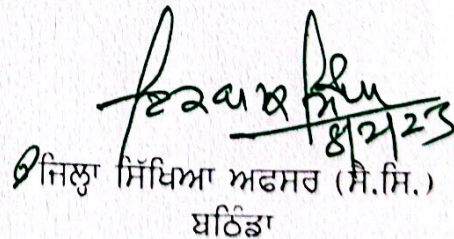 8/2/23
ਜਿਲ੍ਹਾ ਸਿੱਖਿਆ ਅਫਸਰ (ਸੈ.ਸਿ.)
ਬਠਿੰਡਾ